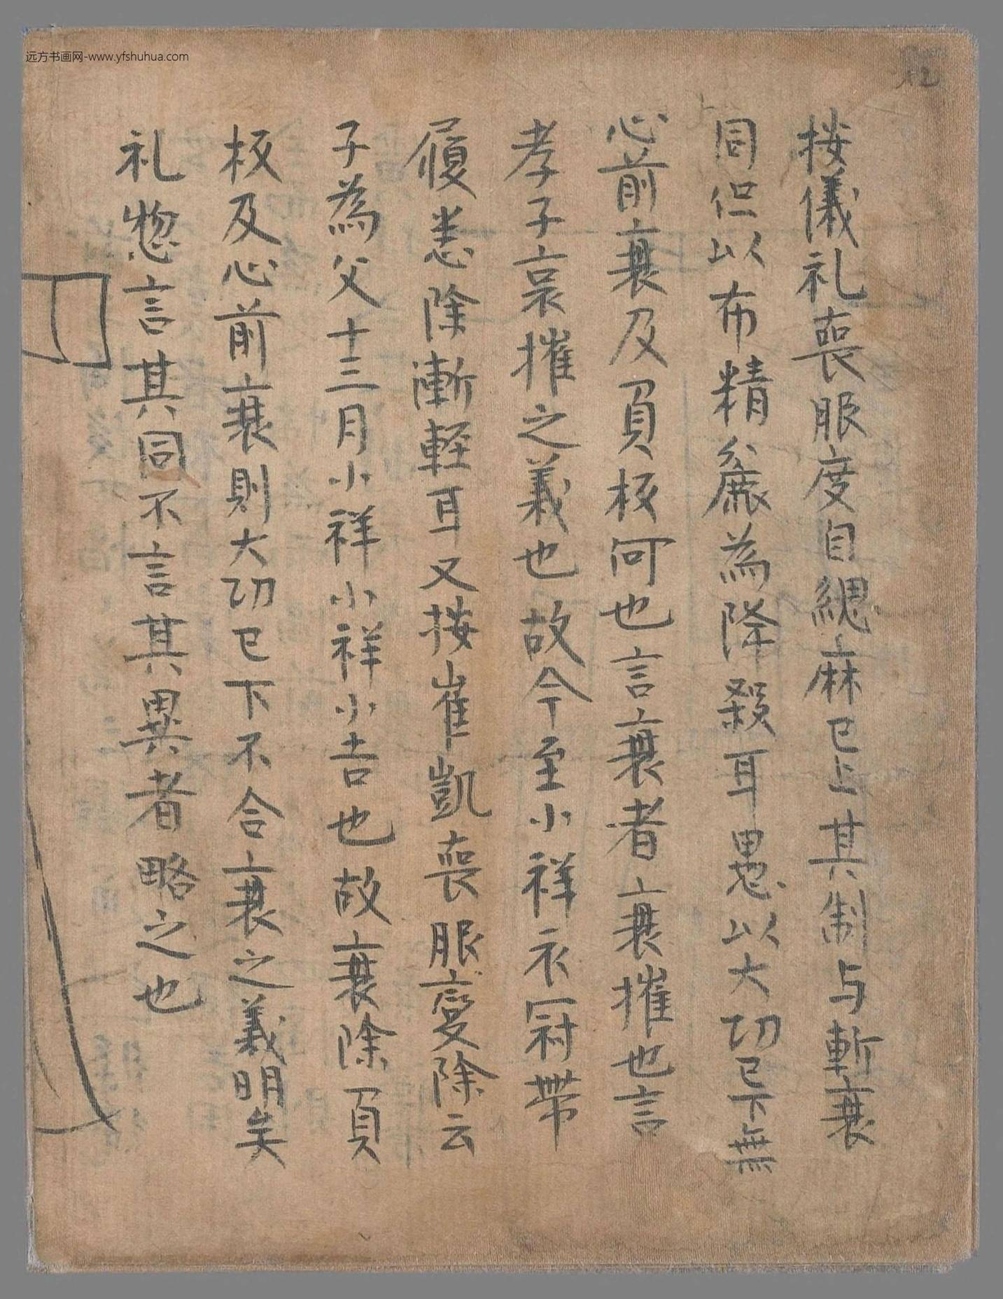 远方书画网-www.yfshuhua.com
12
按儀礼喪服度自緦麻已上其制与斬衰
同但以布精麁為降殺耳愚以大功已下無
心前衰及負板何也言衰者衰摧也言
孝子哀摧之義也故今至小祥衣冠帶
履悉除漸輕耳又按崔凱喪服變除云
子為父十三月小祥小祥小吉也故衰除負
板及心前衰則大功已下不合衰之義明矣
礼惣言其同不言其異者略之也